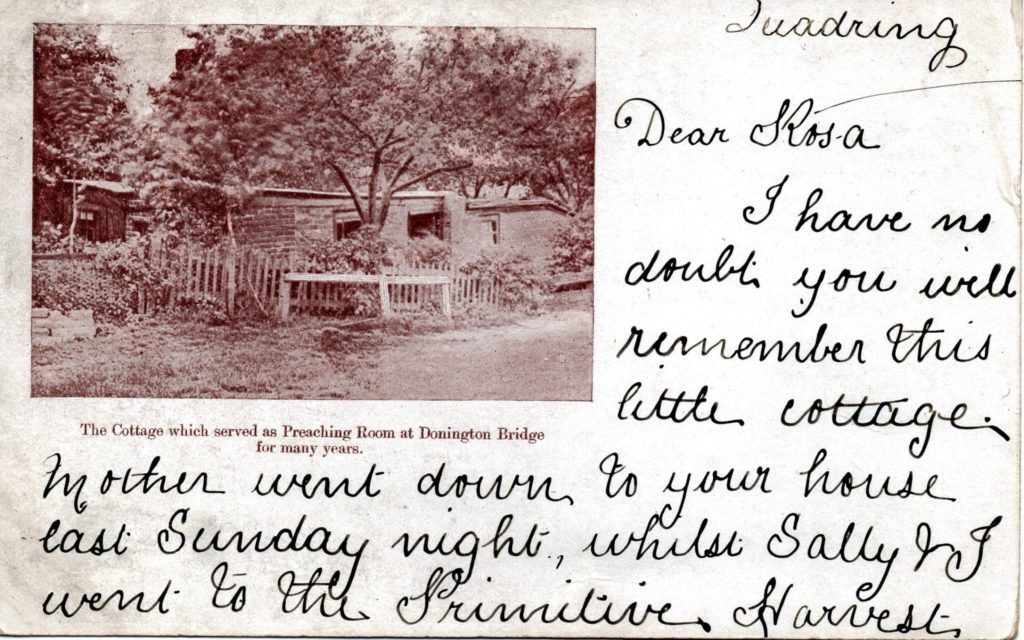 Quadring
Dear Rosa
I have no
doubt you will
remember this
little cottage.
The Cottage which served as Preaching Room at Donington Bridge
for many years.
Mother went down to your house
last Sunday night, whilst Sally & I
went to the Primitive Harvest